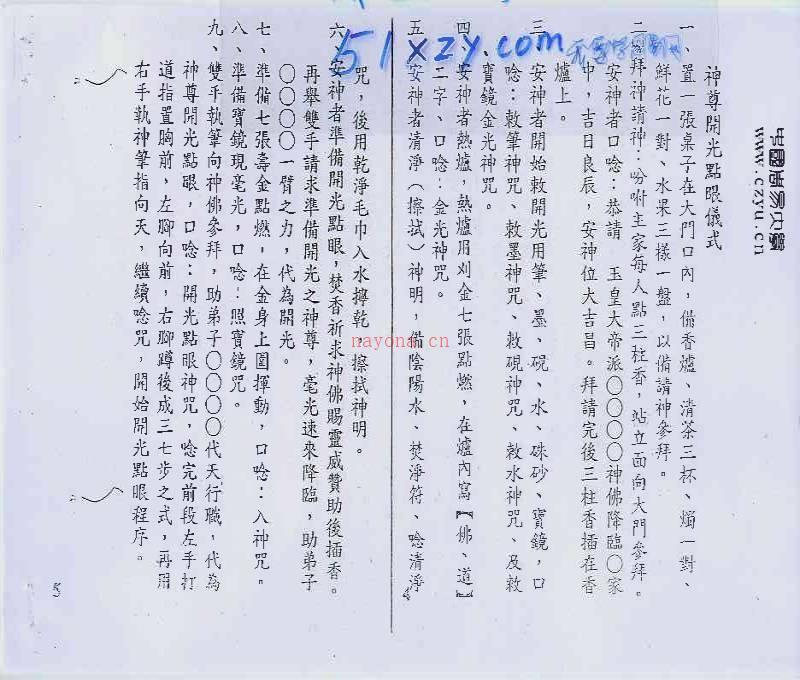 神尊開光點眼儀式
一、置一張桌子在大門口內，備香爐、清茶三杯、燭一對、
鮮花一對、水果三樣一盤，以備請神參拜。
二、拜神請神：吩咐主家每人點三柱香，站立面向大門參拜。
安神者口唸：恭請 玉皇大帝派〇〇〇〇神佛降臨〇家
中，吉日良辰，安神位大吉昌。拜請完後三柱香插在香
爐上。
三、安神者開始敕開光用筆、墨、硯、水、硃砂、寶鏡，口
唸：敕筆神咒、敕墨神咒、敕硯神咒、敕水神咒、及敕
寶鏡金光神咒。
四、安神者熱爐，熱爐用刈金七張點燃，在爐內寫【佛、道】
二字、口唸：金光神咒。
五、安神者清淨（擦拭）神明，備陰陽水、焚淨符、唸清淨
咒，後用乾淨毛巾入水擰乾，擦拭神明。
六、安神者準備開光點眼，焚香祈求神佛賜靈威贊助後插香。
再舉雙手請求準備開光之神尊，毫光速來降臨，助弟子
〇〇〇〇一臂之力，代為開光。
七、準備七張壽金點燃，在金身上圍揮動，口唸：入神咒。
八、準備寶鏡現毫光，口唸：照寶鏡咒。
九、雙手執筆向神佛參拜，助弟子〇〇〇〇代天行職，代為
神尊開光點眼，口唸：開光點眼神咒，唸完前段左手打
道指置胸前，左腳向前，右腳蹲後成三七步之式，再用
右手執神筆指向天，繼續唸咒，開始開光點眼程序。
5
www.czyu.cn
51xzy.com
nayona.cn